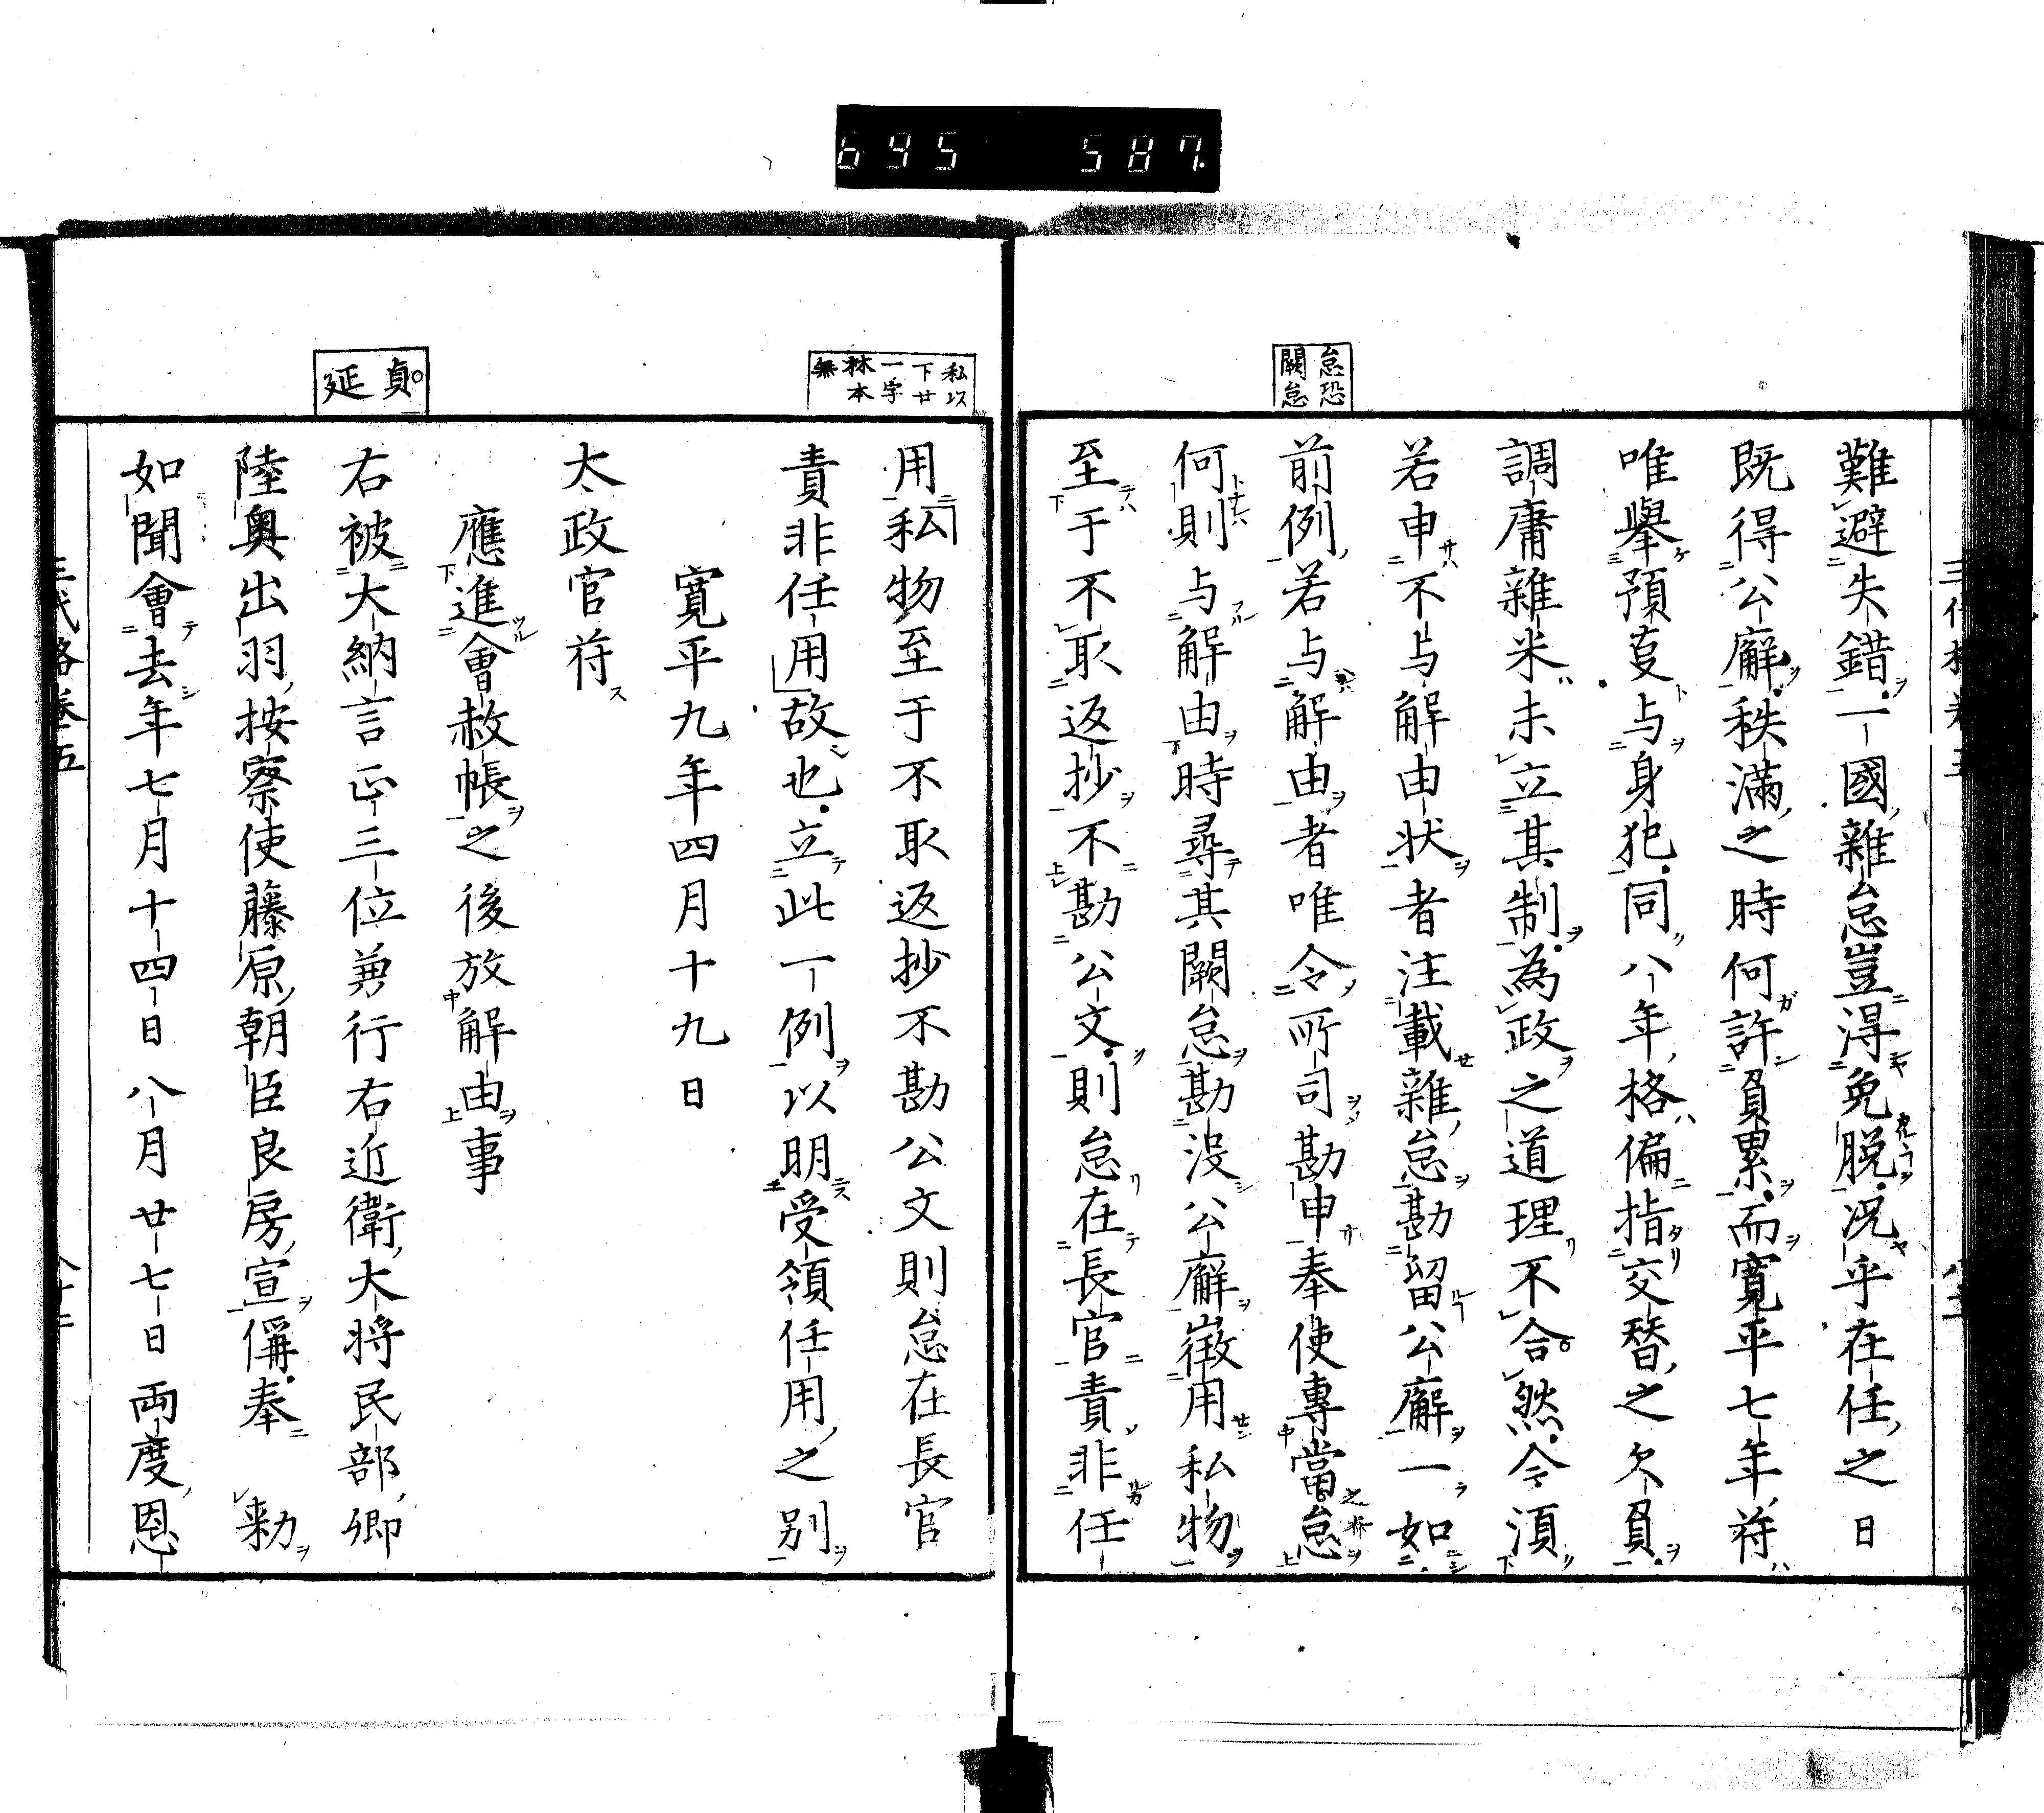 695 587
怠恐
闕怠
難避失錯一國雜怠豈得免脱況乎在任之日
既得公廨秩滿之時何許負累而寛平七年符
唯擧預㕝与身犯同八年格偏指交替之欠負
調庸雜米未立其制為政之道理不合然今須
若申不与解由状者注載雜怠勘留公廨一如
前例若与解由者唯令所司勘申奉使專當怠
何則与解由時尋其闕怠勘没公廨徴用私物
至于不取返抄不勘公文則怠在長官責非任
私以
下廿
一字
林本
無
貞
延
用私物至于不取返抄不勘公文則怠在長官
責非任用故也立此一例以明受領任用之別
寛平九年四月十九日
太政官符
應進會赦帳之後放解由事
右被大納言正三位兼行右近衛大将民部卿
陸奥出羽按察使藤原朝臣良房宣偁奉 勅
如聞會去年七月十四日八月廿七日両度恩